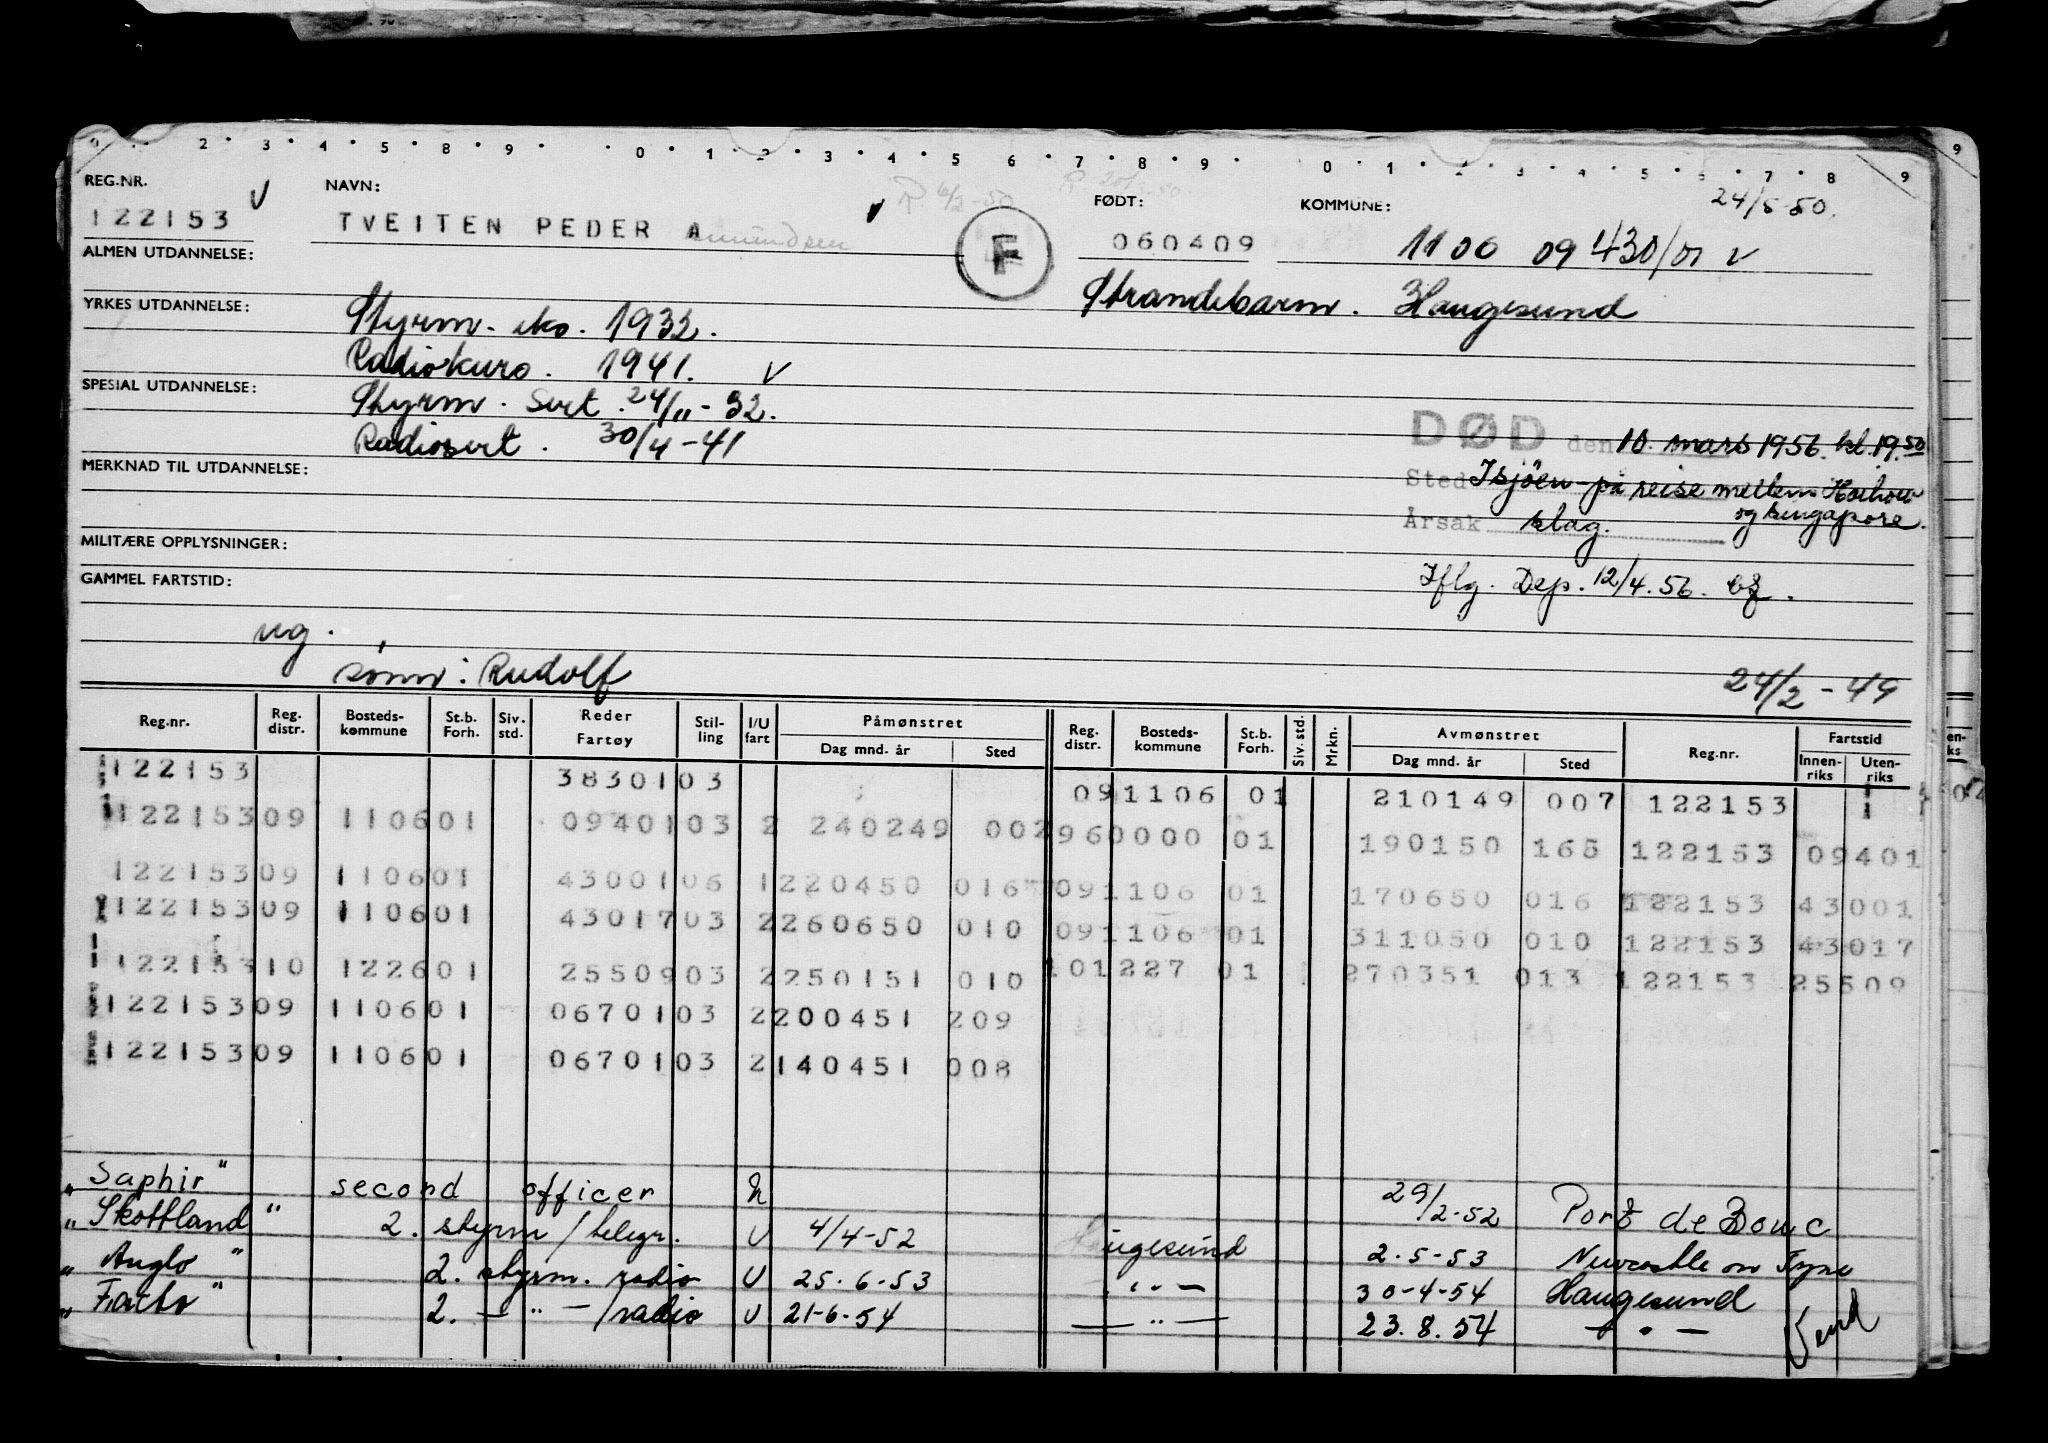 0 2 3 4 5 8 9 0 1 2 3 4 5 6 7 8 9 0 1 2 3 4 5 6 7 8 9
REG.NR. NAVN: FØDT: KOMMUNE: 24/5-50.
122153 TVEITEN PEDER A F 060409 1106 09 430/01 V
ALMEN UTDANNELSE: Strandebarm. Haugesund
YRKES UTDANNELSE: Styrm. eks. 1932.
Radiokurs. 1941. V
SPESIAL UTDANNELSE: Styrm. Sert. 24/11-32.
Radiosert. 30/4-41
DØD den 10. mars 1956. kl. 19.50
Sted Isjöen - på reise mellem Hoihow
og Singapore.
Årsak slag.
MERKNAD TIL UTDANNELSE:
MILITÆRE OPPLYSNINGER:
GAMMEL FARTSTID:
Iflg. Dep. 12/4.56.
ug.
sønn: Rudolf 24/2-49
Reg.nr. Reg. distr. Bosteds-kommune St.b. Forh. Siv. std. Reder Fartøy Stil-ling I/U fart Påmønstret Dag mnd. år Sted Reg. distr. Bosteds-kommune St.b. Forh. Siv. std. Mrkn. Avmønstret Dag mnd. år Sted Reg.nr. Fartstid Innen-riks Uten-riks
122153 3830103 091106 01 210149 007 122153
122153 09 1106 01 09401 03 2 240249 002 960000 01 190150 165 122153 09401
122153 09 1106 01 43001 06 1 220450 016 091106 01 170650 016 122153 43001
122153 09 1106 01 43017 03 2 260650 010 091106 01 311050 010 122153 43017
122153 10 1226 01 25509 03 2 250151 010 101227 01 270351 013 122153 25509
122153 09 1106 01 06701 03 2 200451 209
122153 09 1106 01 06701 03 2 140451 008
"Saphir" second officer 29/2-52 Port de Bouc
"Skottland" 2. styrm / telegr. U 4/4-52 Haugesund 2.5-53 Newcastle on Tyne
"Anglo" 2. styrm. radio U 25.6.53 - " - 30-4-54 Haugesund
2. - " - /radio U 21-6.54 - " - 23.8.54 - " -